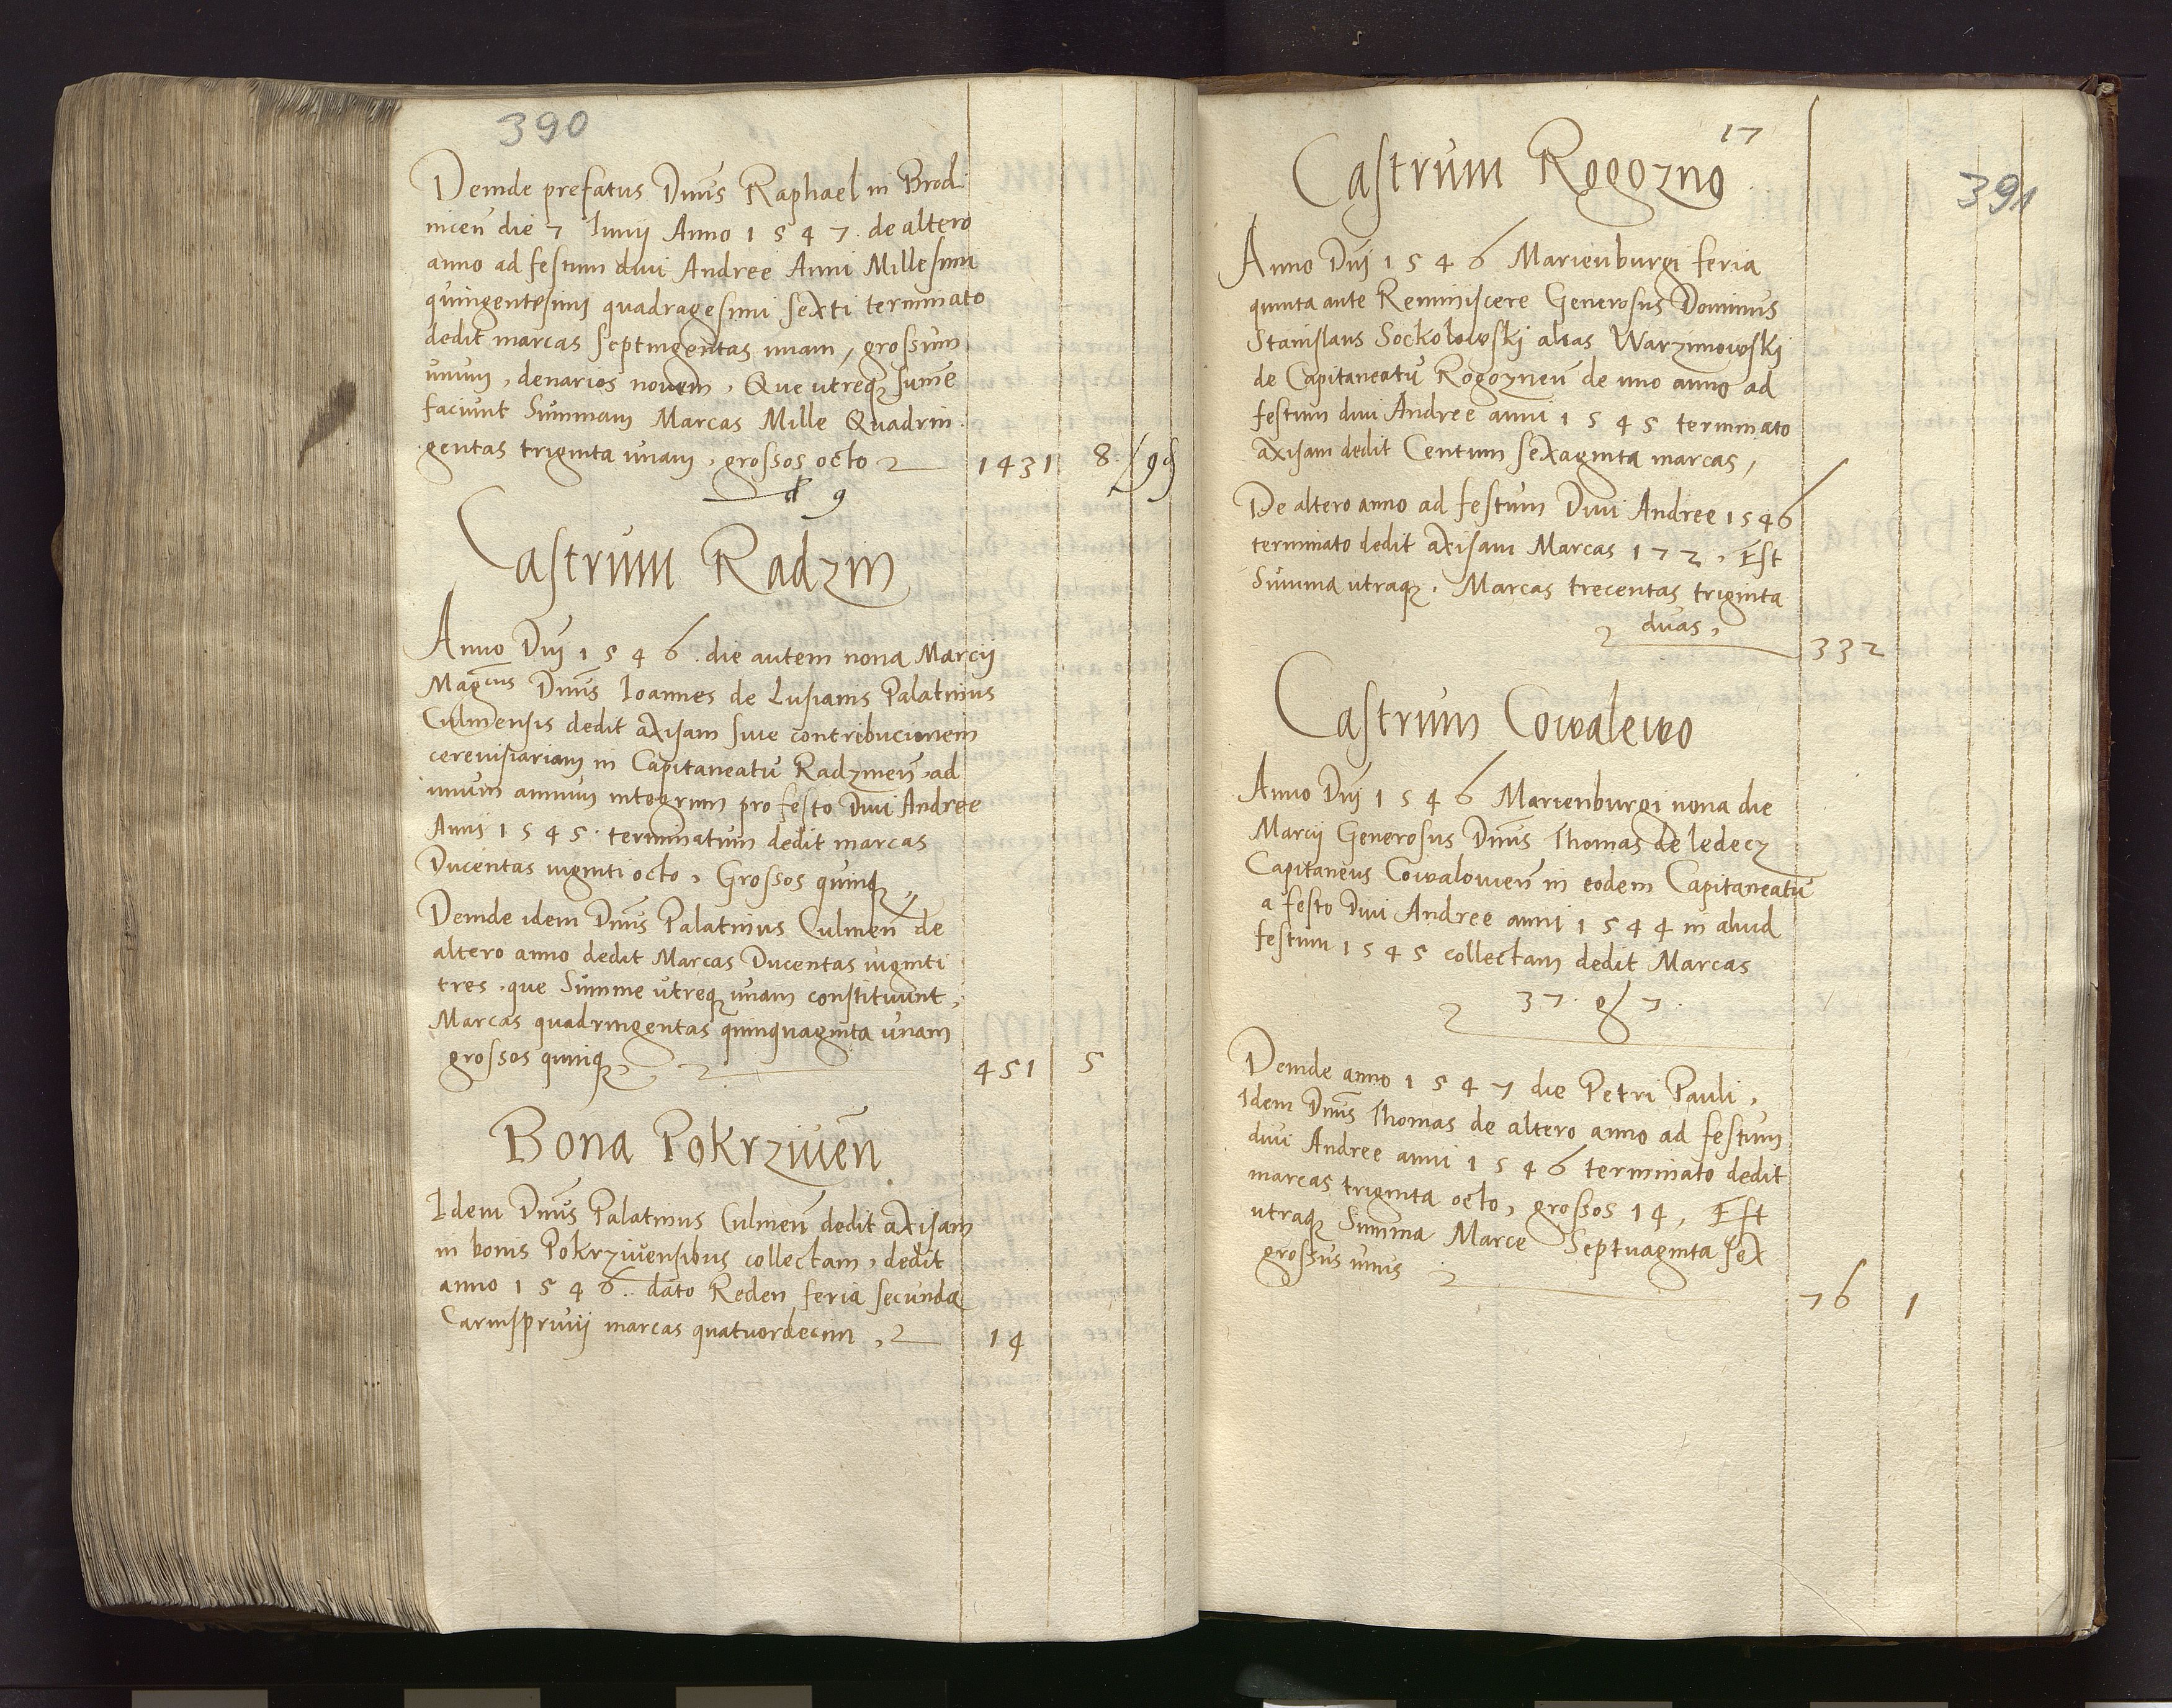 390
Deinde prefatus Dnūs Raphael in Brod
nicen̄ die 7 Iunij Anno 1547. de altero
anno ad festum diui Andree Anni Millesimi
quingentesimi quadragesimi sexti terminato
dedit marcas septingentas unam, grossum
unum, denarios nouem, Que utreq; sum̄e
faciunt Summam Marcas Mille Quadrin
gentas triginta unam, grossos octo 1431 8
₰ 9
Castrum Radzin
Anno Dn̄i 1546. die autem nona Marcij
Magcus Dnūs Ioannes de Lusianis Palatinus
Culmensis dedit axisam siue contribucionem
cereuisiariam in Capitaneatu Radzinen̄ ad
unum annum integrum pro festo Diui Andree
Anni 1545. terminatum dedit marcas
Ducentas uiginti octo, Grossos quinq;
Deinde idem Dnūs Palatinus Culmen̄ de
altero anno dedit Marcas Ducentas uiginti
tres. que Summe utreq; unam constituunt,
Marcas quadringentas quinquaginta unam
grossos quinq;, 451 5
Bona Pokrziuen̄
Idem Dnūs Palatinus Culmen̄ dedit axisam
in bonis Pokrziuensibus collectam, dedit
anno 1546. dato Reden feria secunda
Carnispriuij marcas quatuordecim, 14
17
391
Castrum Rogozno
Anno Dn̄i 1546 Marienburgi feria
quinta ante Reminiscere Generosus Dominus
Stanislaus Sockolowski alias Warzimowski
de Capitaneatu Rogoznen̄ de uno anno ad
festum diui Andree anni 1545 terminato
axisam dedit Centum sexaginta marcas,
De altero anno ad festum Diui Andree 1546
terminato dedit axisam Marcas 172, Est
Summa utraq;. Marcas trecentas triginta
duas, 332
Castrum Cowalewo
Anno Dn̄i 1546 Marienburgi nona die
Marcij Generosus Dnūs Thomas de ledecz
Capitaneus Cowalouien̄ in eodem Capitaneatu
a festo Diui Andree anni 1544 in aliud
festum 1545 collectam dedit Marcas
37. g 7.
Deinde anno 1547 die Petri Pauli,
Idem Dnūs Thomas de altero anno ad festum
diui Andree anni 1546 terminato dedit
marcas triginta octo, grossos 14, Est
utraq; Summa Marce Septuaginta sex
grossus unus 76 1